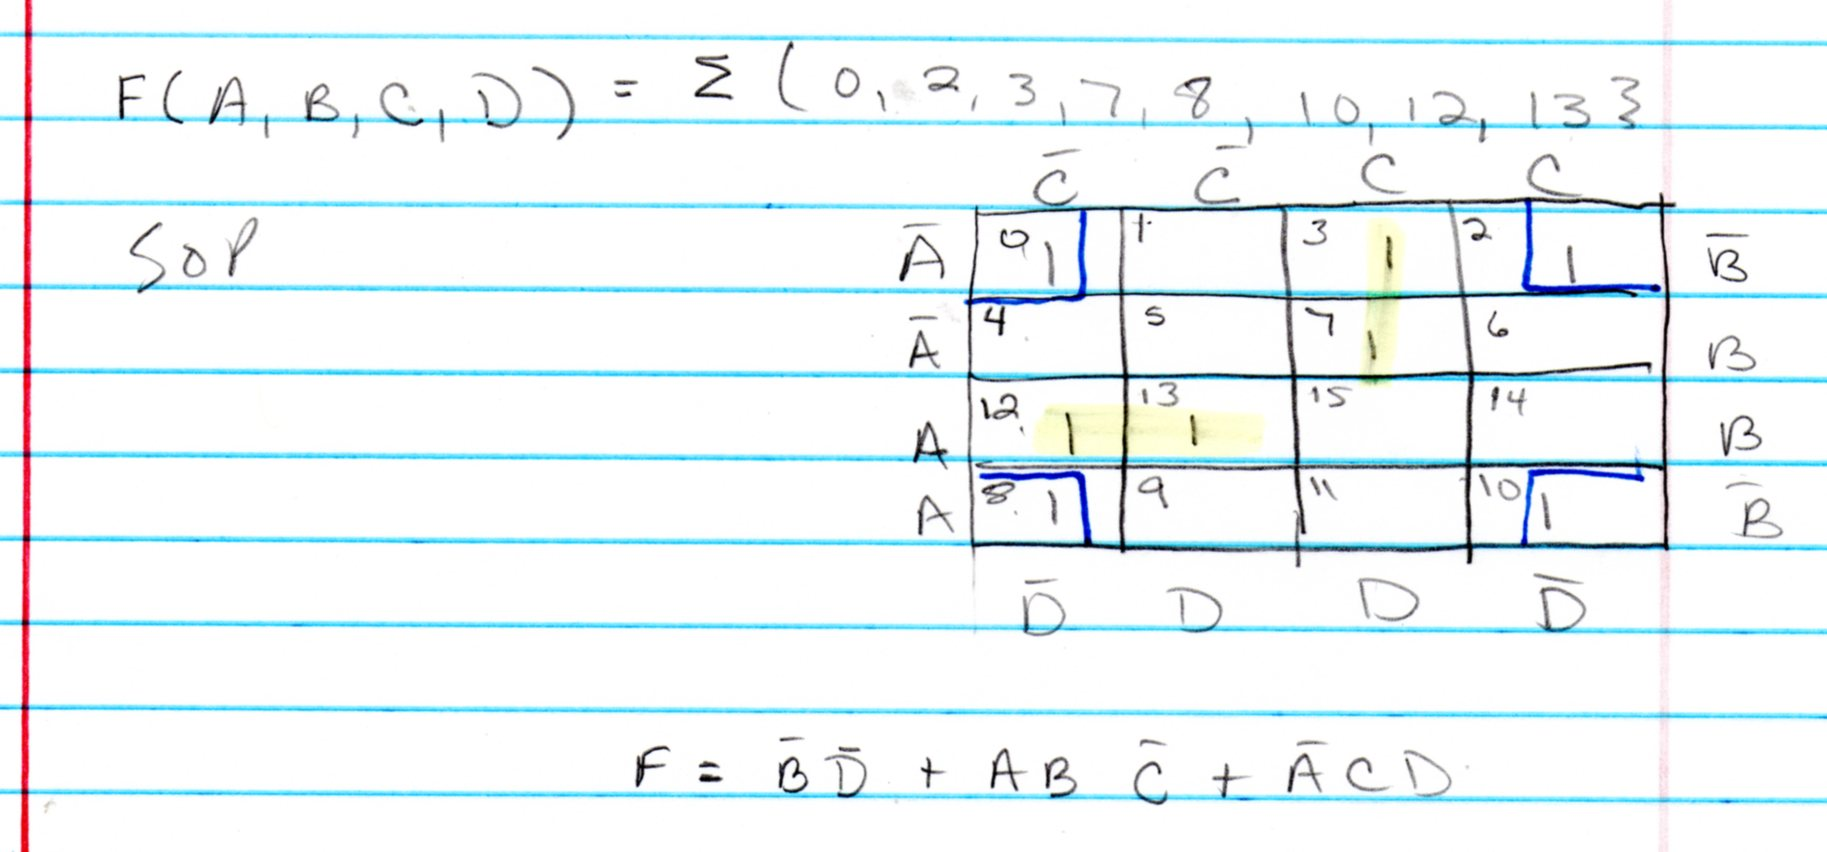 F(A, B, C, D) = Σ (0, 2, 3, 7, 8, 10, 12, 13}
SOP
C̅ C̅ C C
A̅ 0 1 1 3 1 2 1 B̅
A̅ 4 5 7 1 6 B
A 12 1 13 1 15 14 B
A 8 1 9 11 10 1 B̅
D̅ D D D̅
F = B̅ D̅ + A B C̅ + A̅ C D